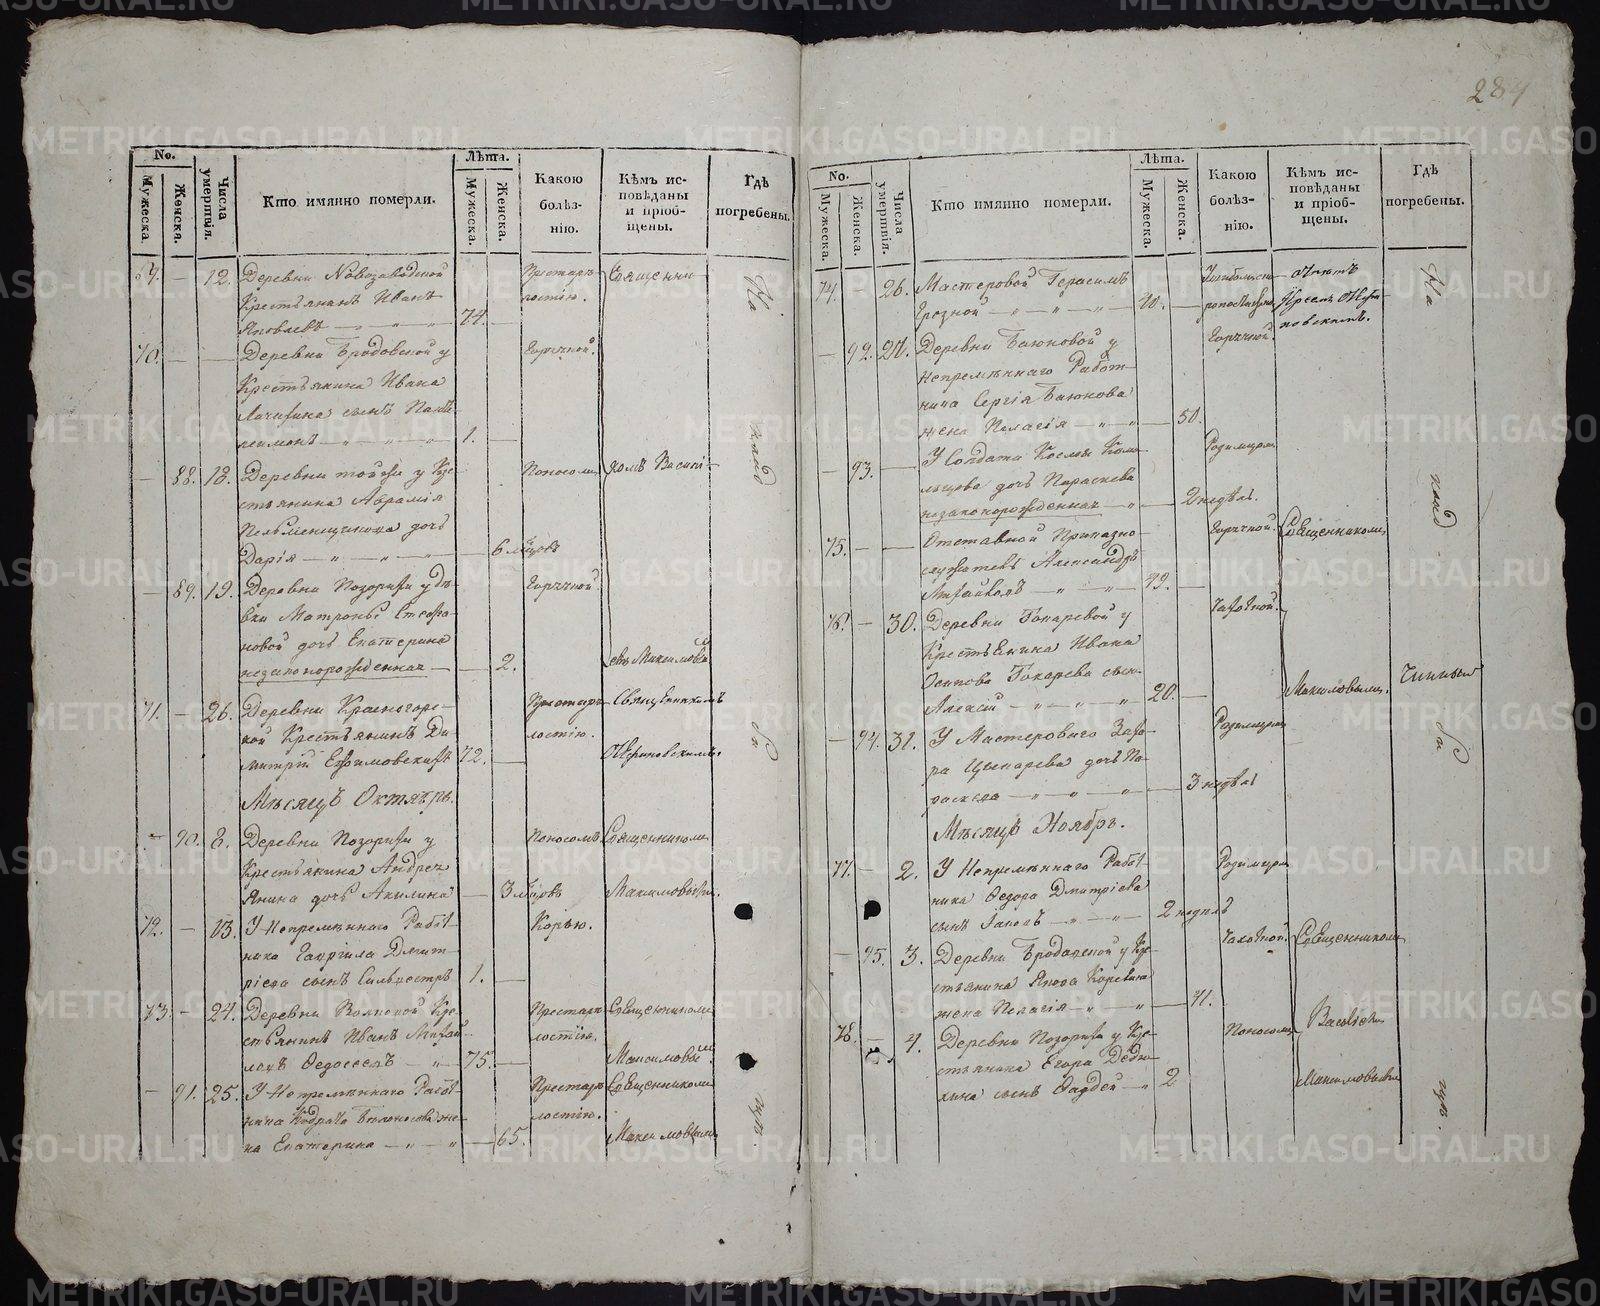 284
No.
Мужеска.
Женска.
Числа умертвія.
Кто имянно померли.
Лѣта.
Мужеска.
Женска.
Какою болѣз-
нію.
Кѣмъ ис-
повѣданы
и пріоб-
щены.
Гдѣ
погребены.
69. — 12. Деревни Новозаводской
Крестьянинъ Иванъ
Яковлевъ — 74. —
Престарѣ-
лостію.
Священни-
70. — — Деревни Бродовской у
Крестьянина Ивана
сынъ Панте-
леимонъ — 1. —
Горячкой.
— 88. 18. Деревни у Кре-
стьянина Аврамія
Пельменщикова дочь
Дарія — 6 мѣсцовъ
Поносомъ
комъ Василі-
— 89. 19. Деревни Позарихи у дѣ-
вки Матроны Стефа-
новой дочь Екатерина
незаконорожденная — 2.
Горячкой.
емъ Максимовы
71. — 26. Деревни Красногор-
ской Крестьянинъ Ди-
митрій Ефимовскихъ 72. —
Престарѣ-
лостію.
Священникомъ
Мѣсяцъ Октябрь.
— 90. 8. Деревни Позарихи у
Крестьянина Андрея
Янина дочь Акилина — 3 мѣсцовъ
Поносомъ
Священникомъ
Максимовымъ.
72. — 13. У Непремѣннаго Работ-
ника Гавріила Дмит-
ріева сынъ Сильвестръ 1. —
Корью.
73. — 24. Деревни Волковой Кре-
стьянинъ Иванъ Михай-
ловъ Федосеевъ — 75. —
Престарѣ-
лостію.
Священникомъ
Максимовымъ
— 91. 25. У Непремѣннаго Работ-
ника Кодрата Белоносова же-
на Екатерина — 65.
Престарѣ-
лостію.
Священникомъ
Максимовымъ
На
клад
би
щѣ.
No.
Мужеска.
Женска.
Числа умертвія.
Кто имянно померли.
Лѣта.
Мужеска.
Женска.
Какою
болѣз-
нію.
Кѣмъ ис-
повѣданы
и пріоб-
щены.
Гдѣ
погребены.
74. — 26. Мастеровой Герасимъ
Грозной — 70. —
— 92. 27. Деревни Баюновой у
Непремѣннаго Работ-
ника Сергія Баюнова
жена Пелагія — 50.
Горячкой.
— 93. — У Солдата Космы Коль-
цова дочь Параскева
незаконорожденная — 2 недѣль.
Родимцомъ
75. — — Отставной Приказно-
служитель Александръ
Михайловъ — 49. —
Горячкой.
Священникомъ
76. — 30. Деревни Токаревой у
Крестьянина Ивана
Осипова Токарева сынъ
Алексій — 20. —
Чахоткой.
Максимовымъ.
— 94. 31. У Мастероваго Заха-
ра Цыпарева дочь Па-
раскева — 3 недѣль
Родимцомъ
Мѣсяцъ Ноябрь.
77. — 2. У Непремѣннаго Работ-
ника Федора Дмитріева
сынъ Іаковъ — 2 недѣль
Родимцомъ
— 95. 3. Деревни Бродовской у Кре-
стьянина Якова Коревина
жена Пелагія — 41.
Чахоткой.
Священникомъ
78. — 4. Деревни Позарихи у Кре-
стьянина Егора Дедю-
хина сынъ Фаддей — 2
Поносомъ
Василіемъ
Максимовымъ
На
клад
би
щѣ.